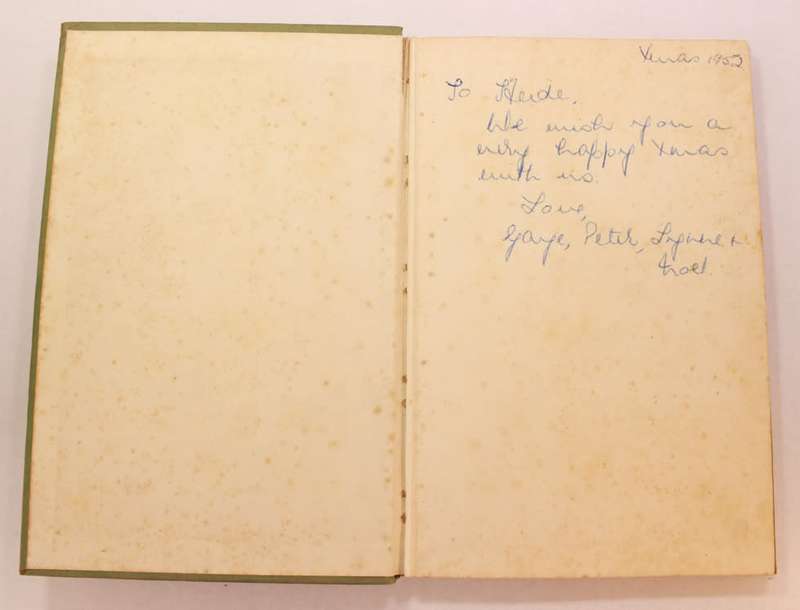 Xmas 1952
To Heide,
We wish you a
very happy Xmas
with us.
Love,
Gaye, Peter, Lynne +
Noel.